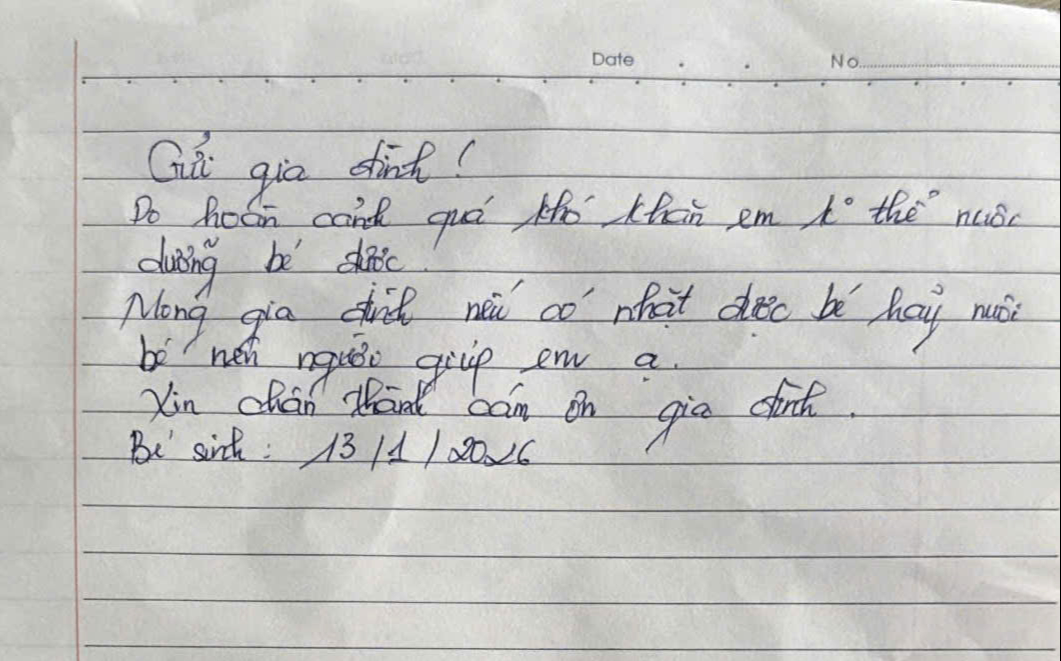 Date . . No.
Gửi gia đình!
Do hoàn cảnh quá khó khăn em k° thể nuôi
dưỡng bé được.
Mong gia đình nếu có nhặt được bé hãy nuôi
bé nên người giúp em ạ.
Xin chân thành cảm ơn gia đình.
Bé sinh: 13/1/2026